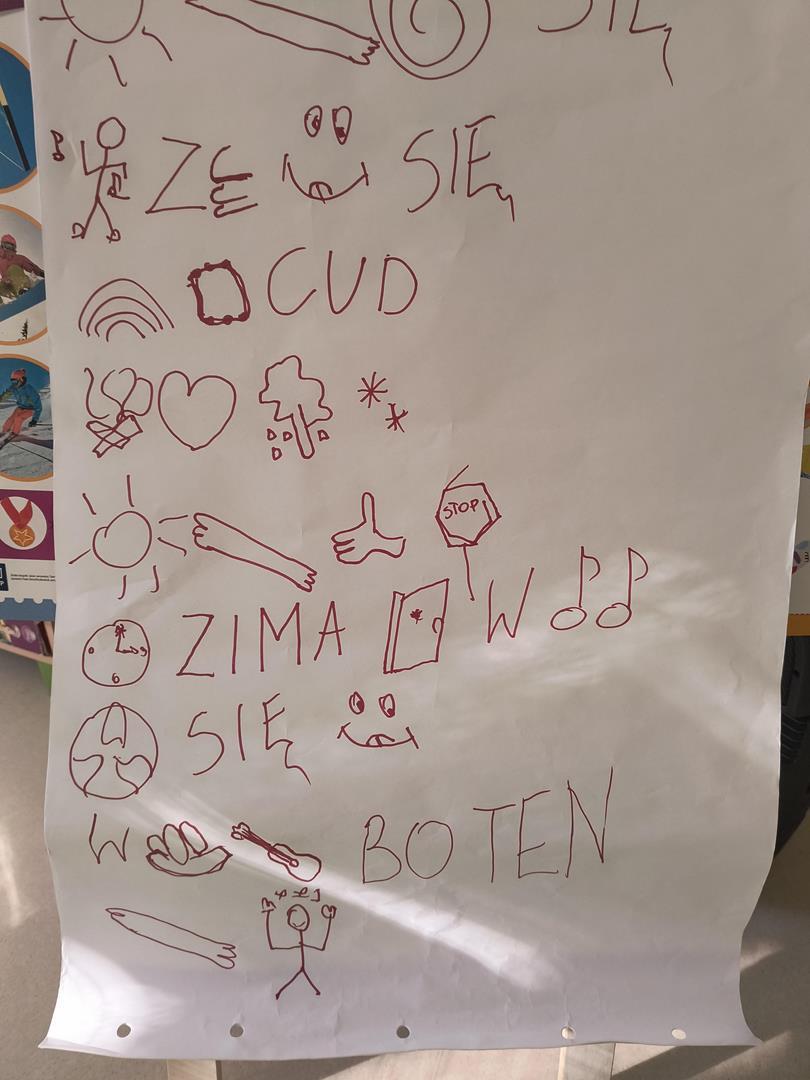 SIĘ
ZE SIĘ
CUD
STOP
12 3 6 9 ZIMA W
SIĘ
W BO TEN